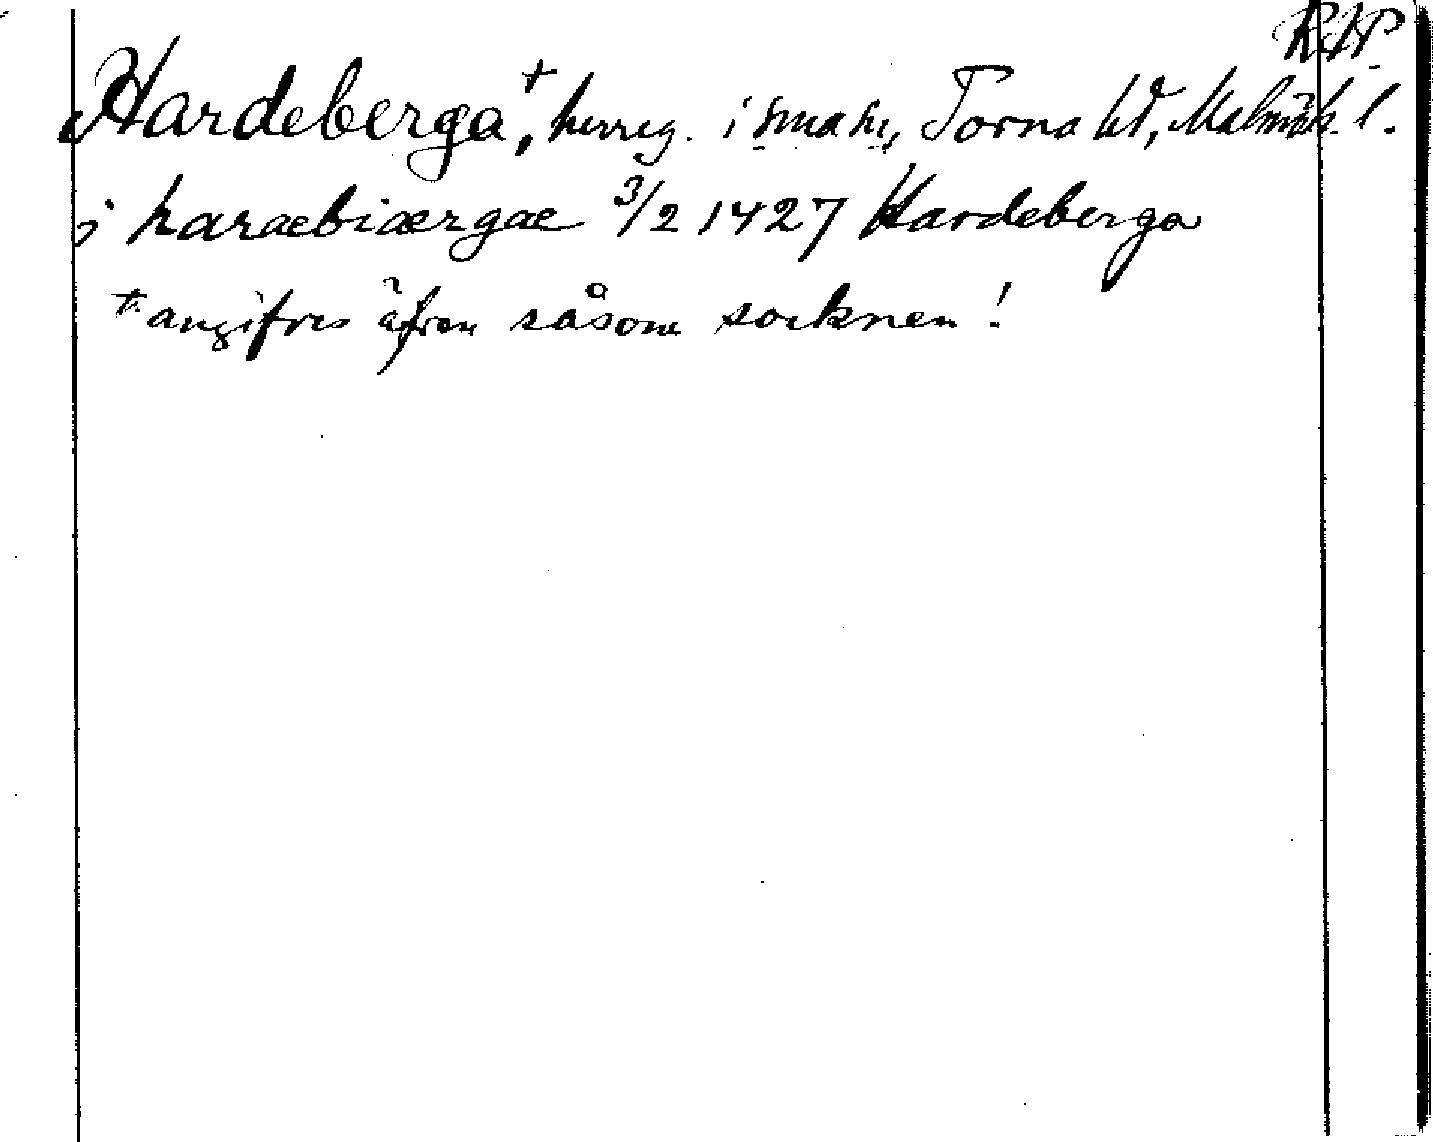 RAP.
Hardeberga,⁺ herreg. i sma hs, Torna hd, Malmöh. l.
j haræbiærgæ 3/2 1427 Hardeberga
⁺ angifves äfven såsom socknen!